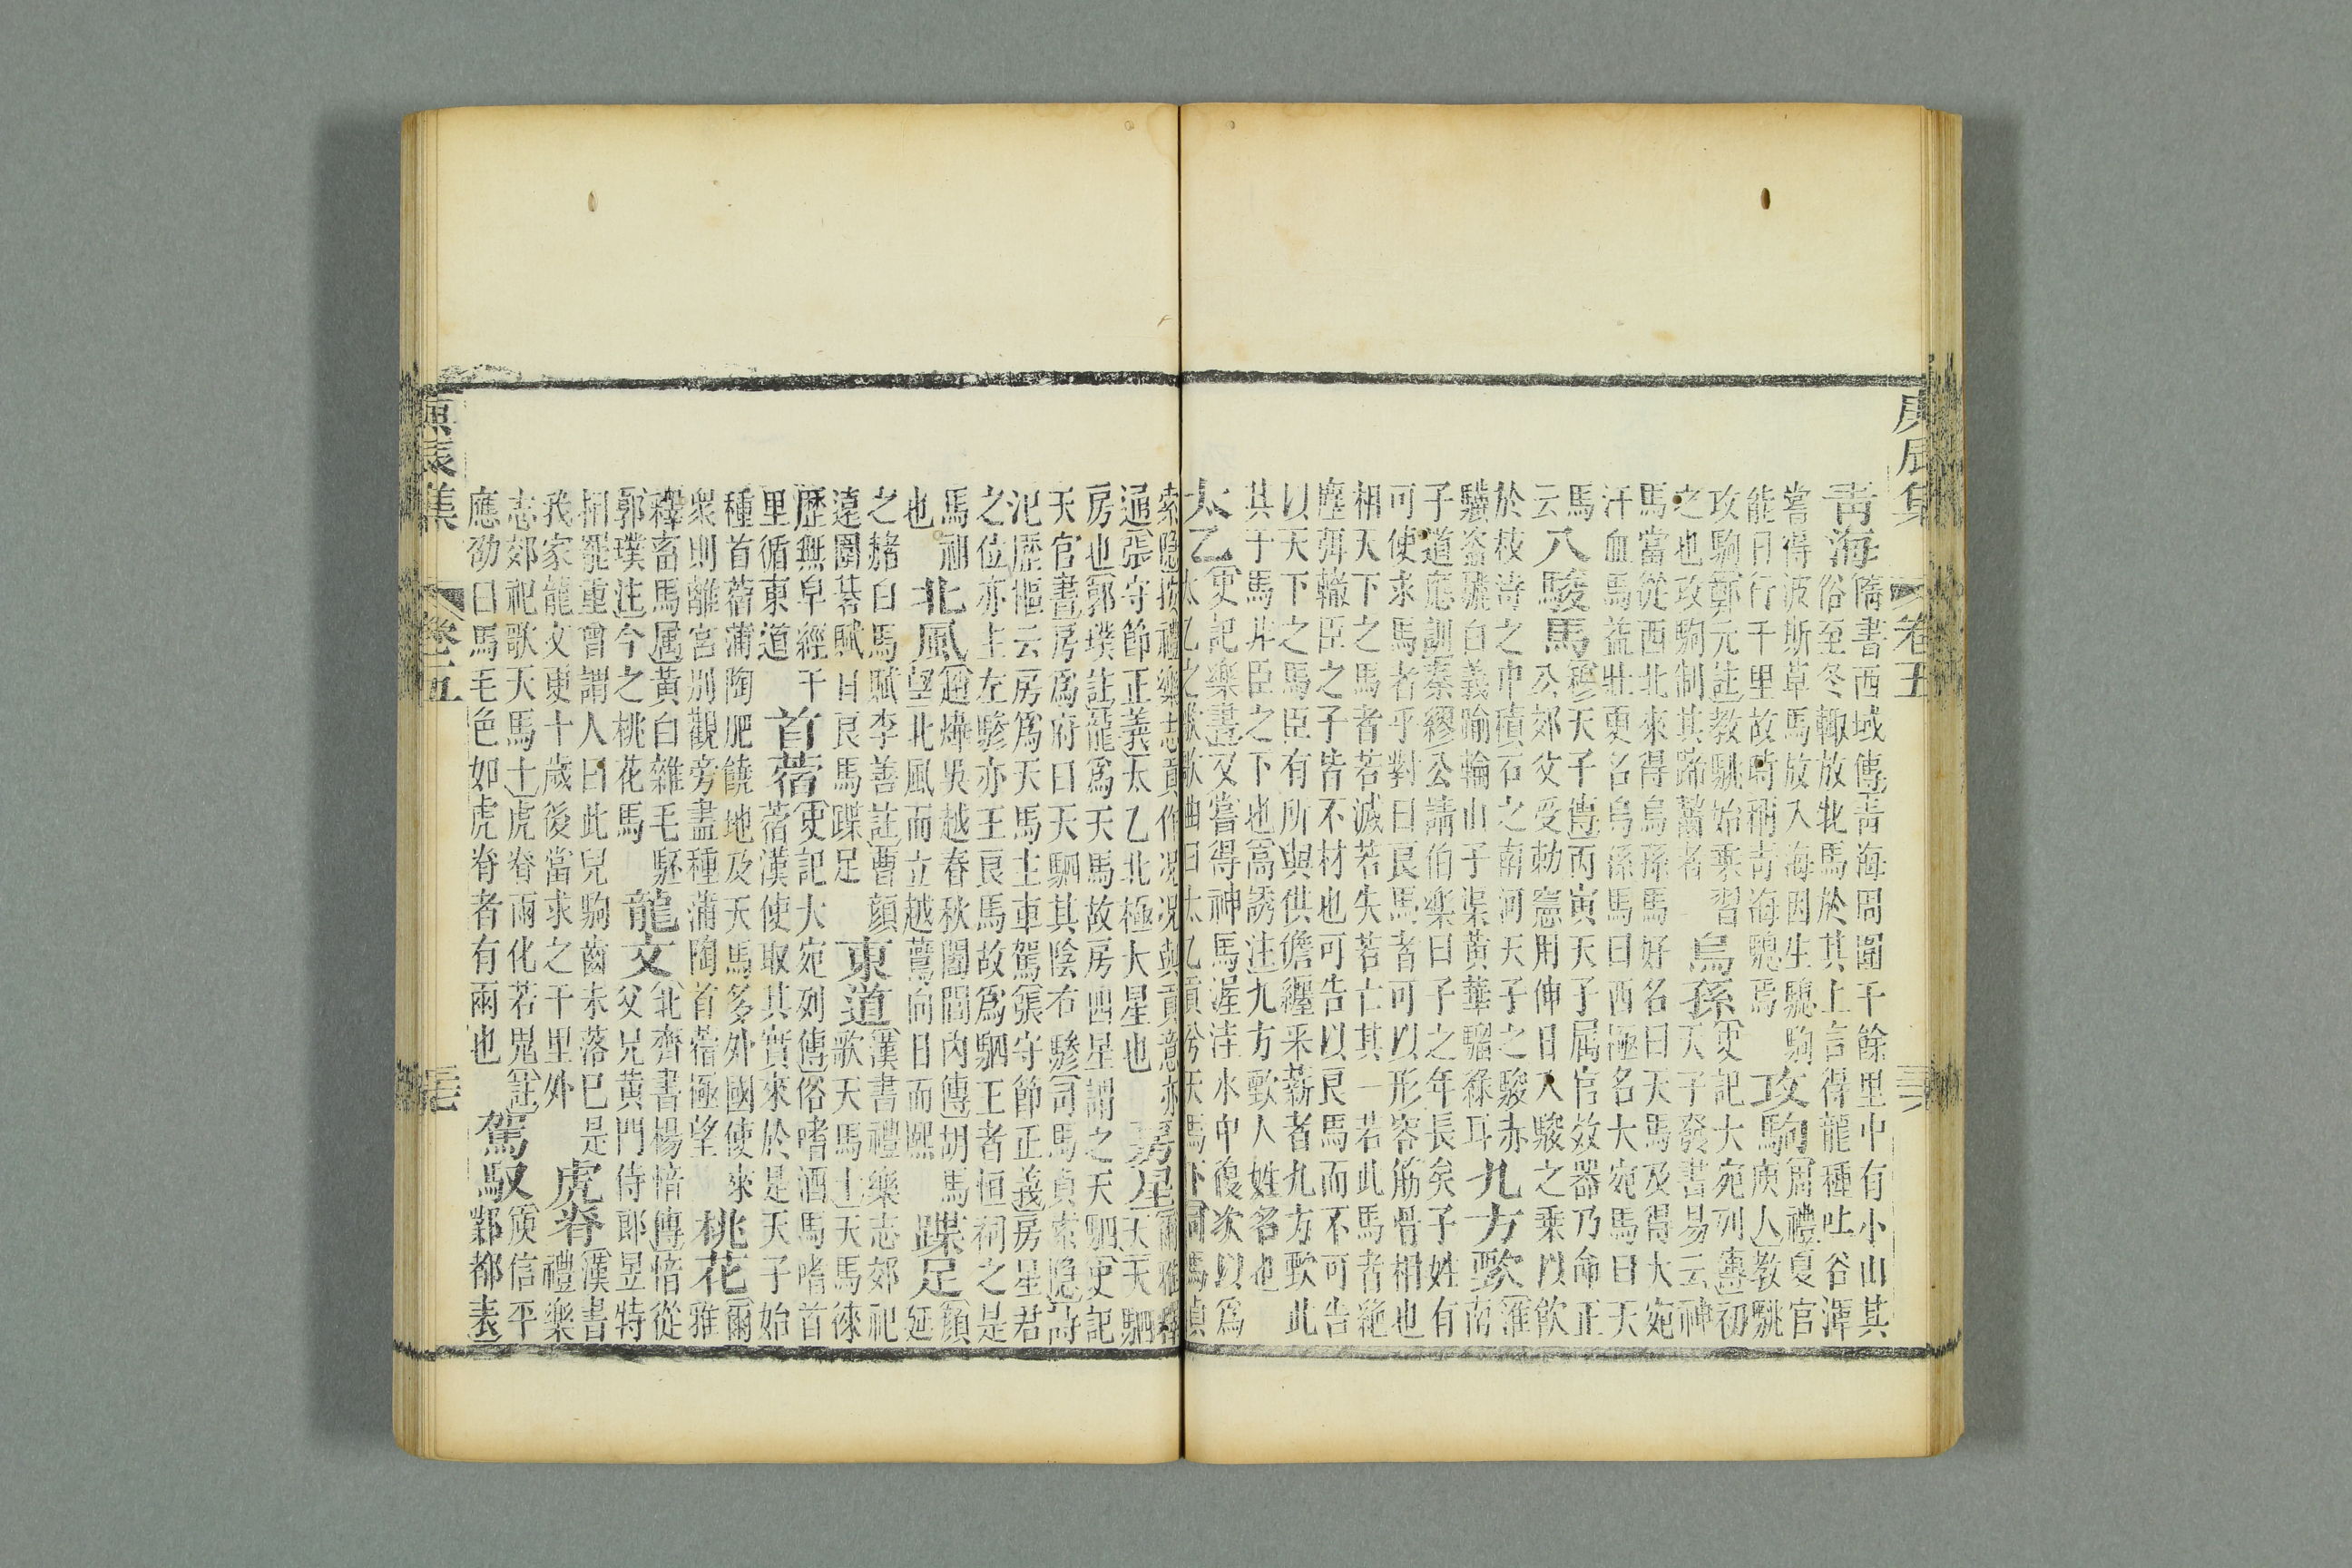 庚辰集 卷五
青海
隋書西域傳青海周圍千餘里中有小山其
俗至冬輙放牝馬於其上言得龍種吐谷渾
嘗得波斯草馬放入海因生驄駒
能日行千里故時稱青海驄焉
攻駒
周禮夏官
庾人教駣
攻駒鄭元註教駣始乘習
之也攻駒制其蹄齧者
烏孫
史記大宛列傳初
天子發書易云神
馬當從西北來得烏孫馬好名曰天馬及得大宛
汗血馬益壯更名烏孫馬曰西極名大宛馬曰天
馬
云
八駿馬
穆天子傳丙寅天子属官效器乃命正
公郊父受勅憲用伸曰八駿之乘以飲
於枝洔之中積石之南河天子之駿赤
驥盜驪白義踰輪山子渠黃華騮綠耳
九方歅
淮
南
子道應訓秦繆公請伯樂曰子之年長矣子姓有
可使求馬者乎對曰良馬者可以形容筋骨相也
相天下之馬者若滅若失若亡其一若此馬者絶
塵弭轍臣之子皆不材也可告以良馬而不可告
以天下之馬臣有所與供儋纆采薪者九方歅此
其于馬非臣之下也高誘注九方歅人姓名也
太乙
史記樂書又嘗得神馬渥洼水中復次以爲
太乙之歌歌曲曰太乙貢兮天馬下司馬貞
索隱按禮樂志貢作况况與貢意亦
通張守節正義太乙北極大星也
房星
爾雅釋
天天駟
房也郭璞註龍爲天馬故房四星謂之天駟史記
天官書房爲府曰天駟其陰右驂司馬貞索隐詩
汜歷樞云房爲天馬主車駕張守節正義房星君
之位亦主左驂亦主良馬故爲駟王者恒祠之是
馬祖
也
北風
趙煒吳越春秋闔閭內傳胡馬
望北風而立越鷰向日而熙
蹀足
顔
延
之赭白馬賦李善註曹顔
遠圍棊賦曰良馬蹀足
東道
漢書禮樂志郊祀
歌天馬士天馬徠
歷無皁經千
里循東道
首蓿
史記大宛列傳俗嗜酒馬嗜首
蓿漢使取其實來於是天子始
種首蓿蒲陶肥饒地及天馬多外國使來
衆則離宮别觀旁盡種蒲陶首蓿極望
桃花
爾
雅
釋畜馬属黃白雜毛駓
郭璞注今之桃花馬
龍文
北齊書楊愔傳愔從
父兄黃門侍郎昱特
相器重曾謂人曰此兒駒齒未落已是
我家龍文更十歲後當求之千里外
虎脊
漢書
禮樂
志郊祀歌天馬士虎脊兩化若鬼註
應劭曰馬毛色如虎脊者有兩也
駕馭
庾信平
鄴都表
庚辰集 卷五